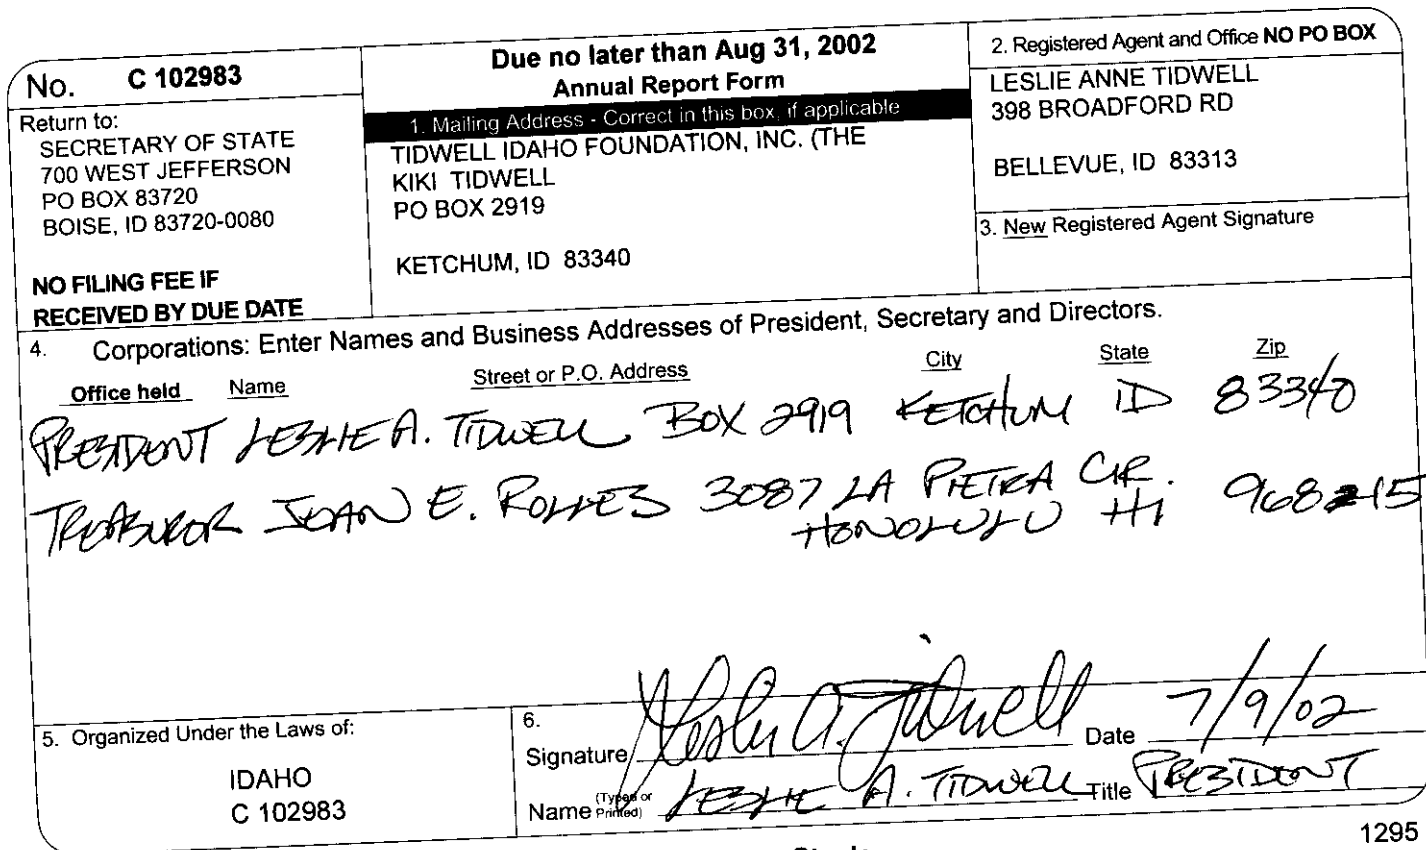 No. C 102983
Return to:
SECRETARY OF STATE
700 WEST JEFFERSON
PO BOX 83720
BOISE, ID 83720-0080
NO FILING FEE IF
RECEIVED BY DUE DATE
Due no later than Aug 31, 2002
Annual Report Form
1. Mailing Address - Correct in this box, if applicable
TIDWELL IDAHO FOUNDATION, INC. (THE
KIKI TIDWELL
PO BOX 2919
KETCHUM, ID 83340
2. Registered Agent and Office NO PO BOX
LESLIE ANNE TIDWELL
398 BROADFORD RD
BELLEVUE, ID 83313
3. New Registered Agent Signature
4. Corporations: Enter Names and Business Addresses of President, Secretary and Directors.
Office held Name Street or P.O. Address City State Zip
PRESIDENT LESLIE A. TIDWELL BOX 2919 KETCHUM ID 83340
TREASUROR JOAN E. ROLFES 3087 LA PIETRA CIR. 96815
HONOLULU HI
5. Organized Under the Laws of:
IDAHO
C 102983
6.
Signature Leslie A. Tidwell Date 7/9/02
Name (Typed or Printed) LESLIE A. TIDWELL Title PRESIDENT
1295